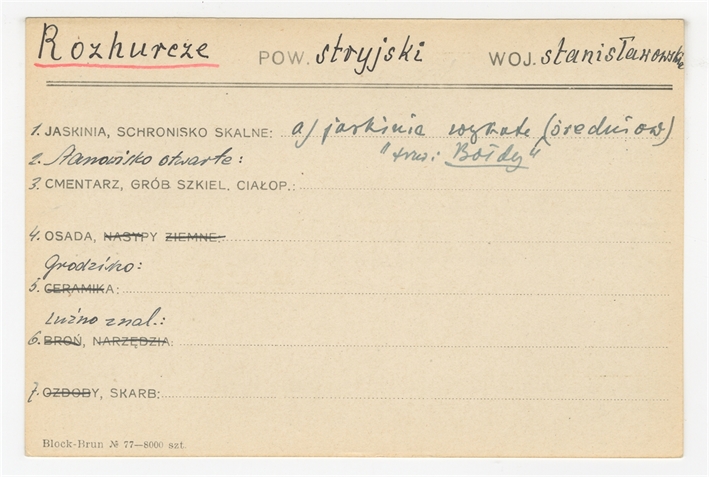 Rozhurcze POW. stryjski WOJ. stanisławowskie
1. JASKINIA, SCHRONISKO SKALNE: a) jaskinia wykute (średniow)
2. Stanowisko otwarte: "trzw: Bołdy"
3. CMENTARZ, GRÓB SZKIEL. CIAŁOP.:
4. OSADA, NASYPY ZIEMNE:
Grodzisko:
5. CERAMIKA:
Luźno znal.:
6. BROŃ, NARZĘDZIA:
7. OZDOBY, SKARB:
Block-Brun № 77—8000 szt.